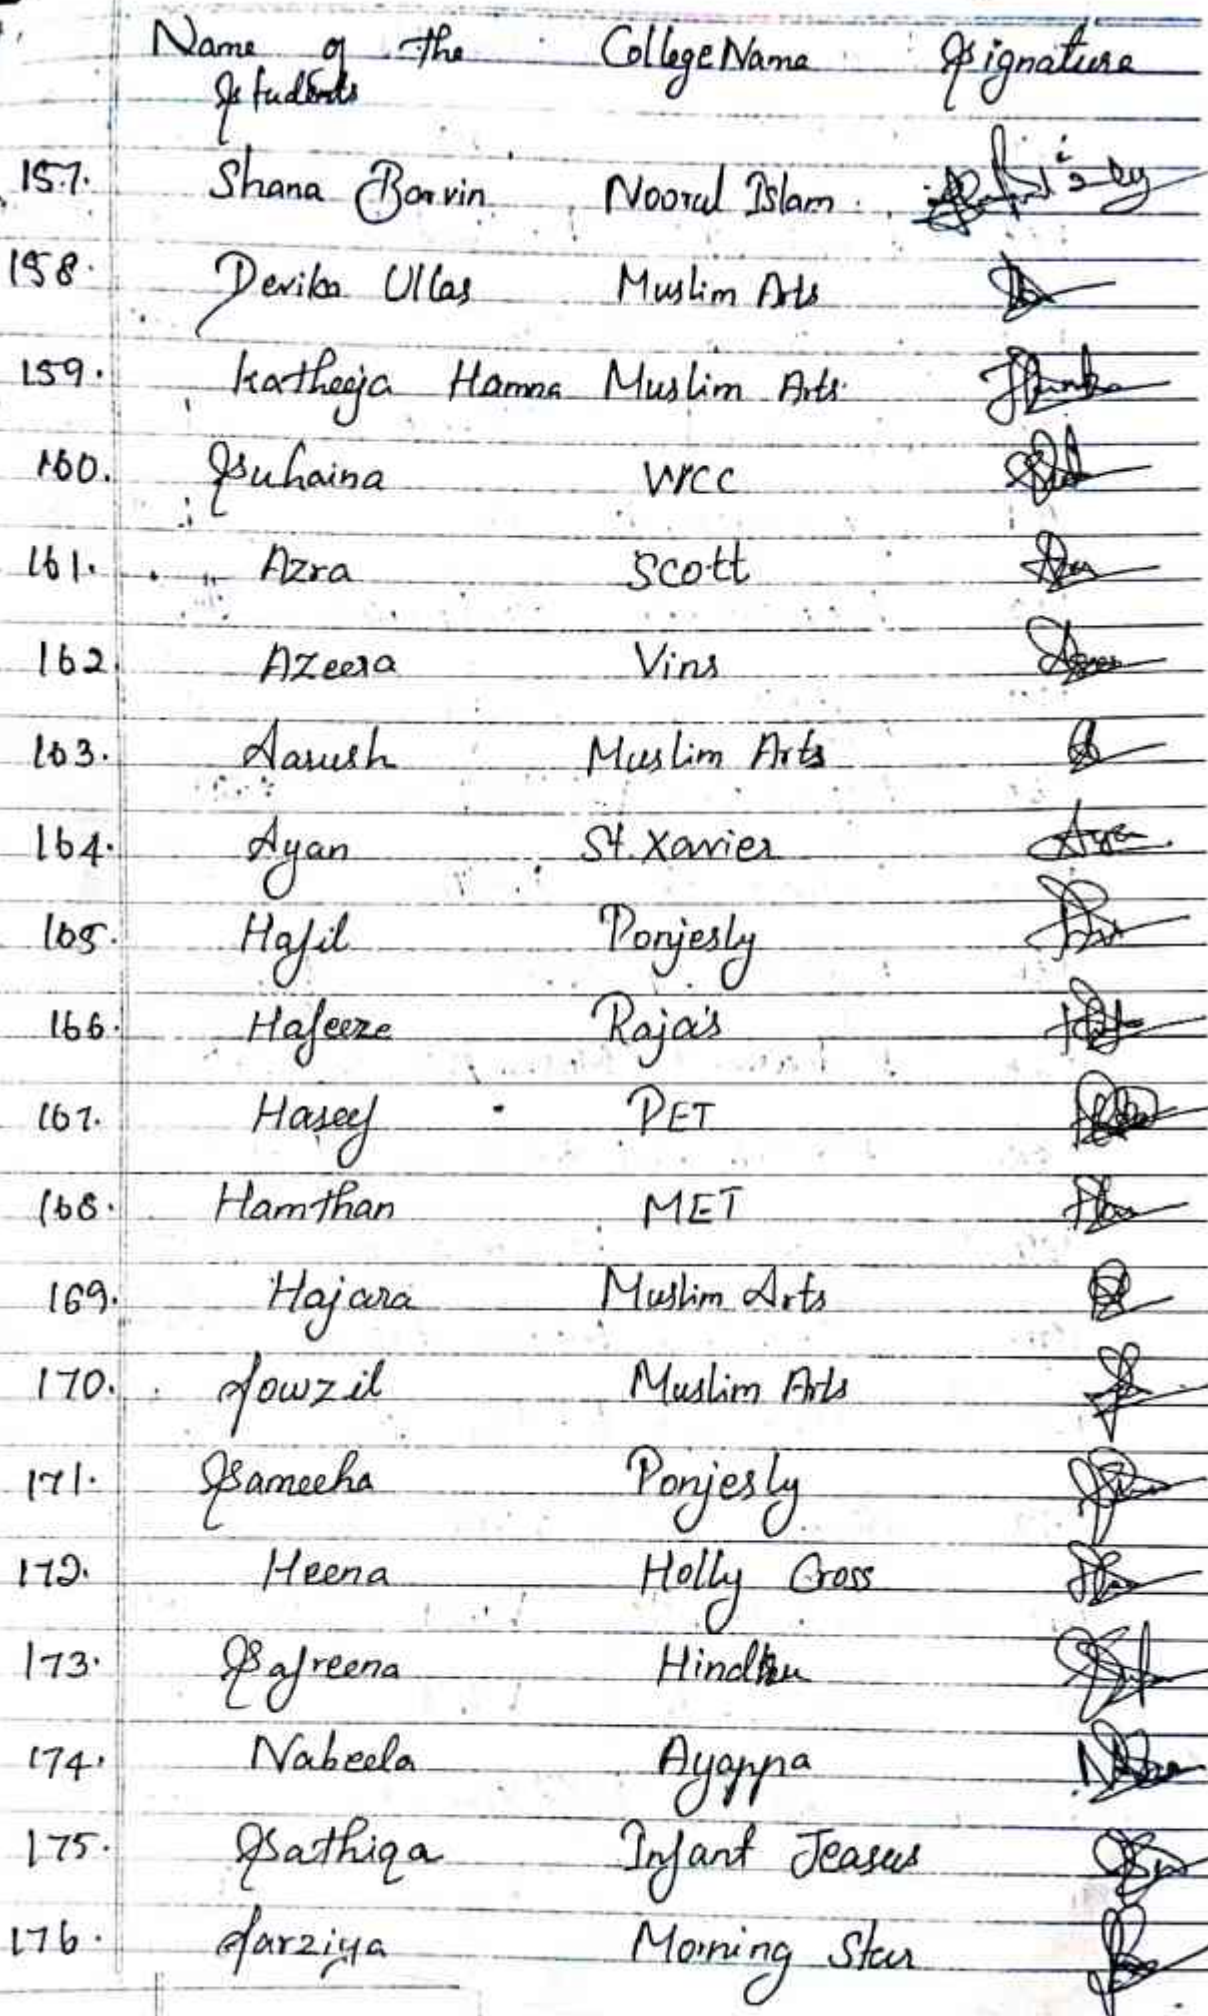 Name of the College Name Signature
Students
157. Shana Barvin Noorul Islam
158. Devika Ullas Muslim Arts
159. Katheeja Hamna Muslim Arts
160. Suhaina WCC
161. Azra Scott
162. Azeera Vins
163. Aarush Muslim Arts
164. Ayan St. Xavier
165. Hafil Ponjesly
166. Hafeeze Raja's
167. Haseef PET
168. Hamthan MET
169. Hajara Muslim Arts
170. Fowzil Muslim Arts
171. Sameeha Ponjesly
172. Heena Holly Cross
173. Safreena Hindhu
174. Nabeela Ayappa
175. Sathiqa Infant Jeasus
176. Farziya Morning Star